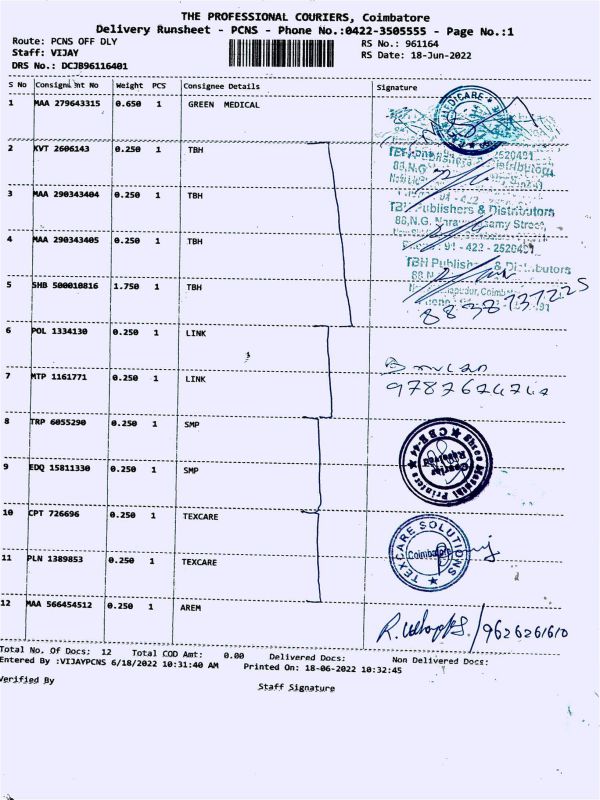 THE PROFESSIONAL COURIERS, Coimbatore
Delivery Runsheet - PCNS - Phone No.:0422-3505555 - Page No.:1
Route: PCNS OFF DLY RS No.: 961164
Staff: VIJAY RS Date: 18-Jun-2022
DRS No.: DCJB96116401
S No Consignment No Weight PCS Consignee Details Signature
1 MAA 279643315 0.650 1 GREEN MEDICAL
2 KVT 2606143 0.250 1 TBH
3 MAA 290343404 0.250 1 TBH
TBH Publishers & Distributors
88,N.G. Street,
4 MAA 290343405 0.250 1 TBH
Phone : 91 - 422 - 252049
TBH Publishers & Distributors
5 SHB 500010816 1.750 1 TBH
8838737225
6 POL 1334130 0.250 1 LINK
7 MTP 1161771 0.250 1 LINK
8 TRP 6055290 0.250 1 SMP
Courier Received
CBE-44
9 EDQ 15811330 0.250 1 SMP
10 CPT 726696 0.250 1 TEXCARE
TEXCARE SOLUTIONS
Coimbatore
11 PLN 1389853 0.250 1 TEXCARE
12 MAA 566454512 0.250 1 AREM
9626261610
Total No. Of Docs: 12 Total COD Amt: 0.00 Delivered Docs: Non Delivered Docs:
Entered By :VIJAYPCNS 6/18/2022 10:31:40 AM Printed On: 18-06-2022 10:32:45
Verified By Staff Signature